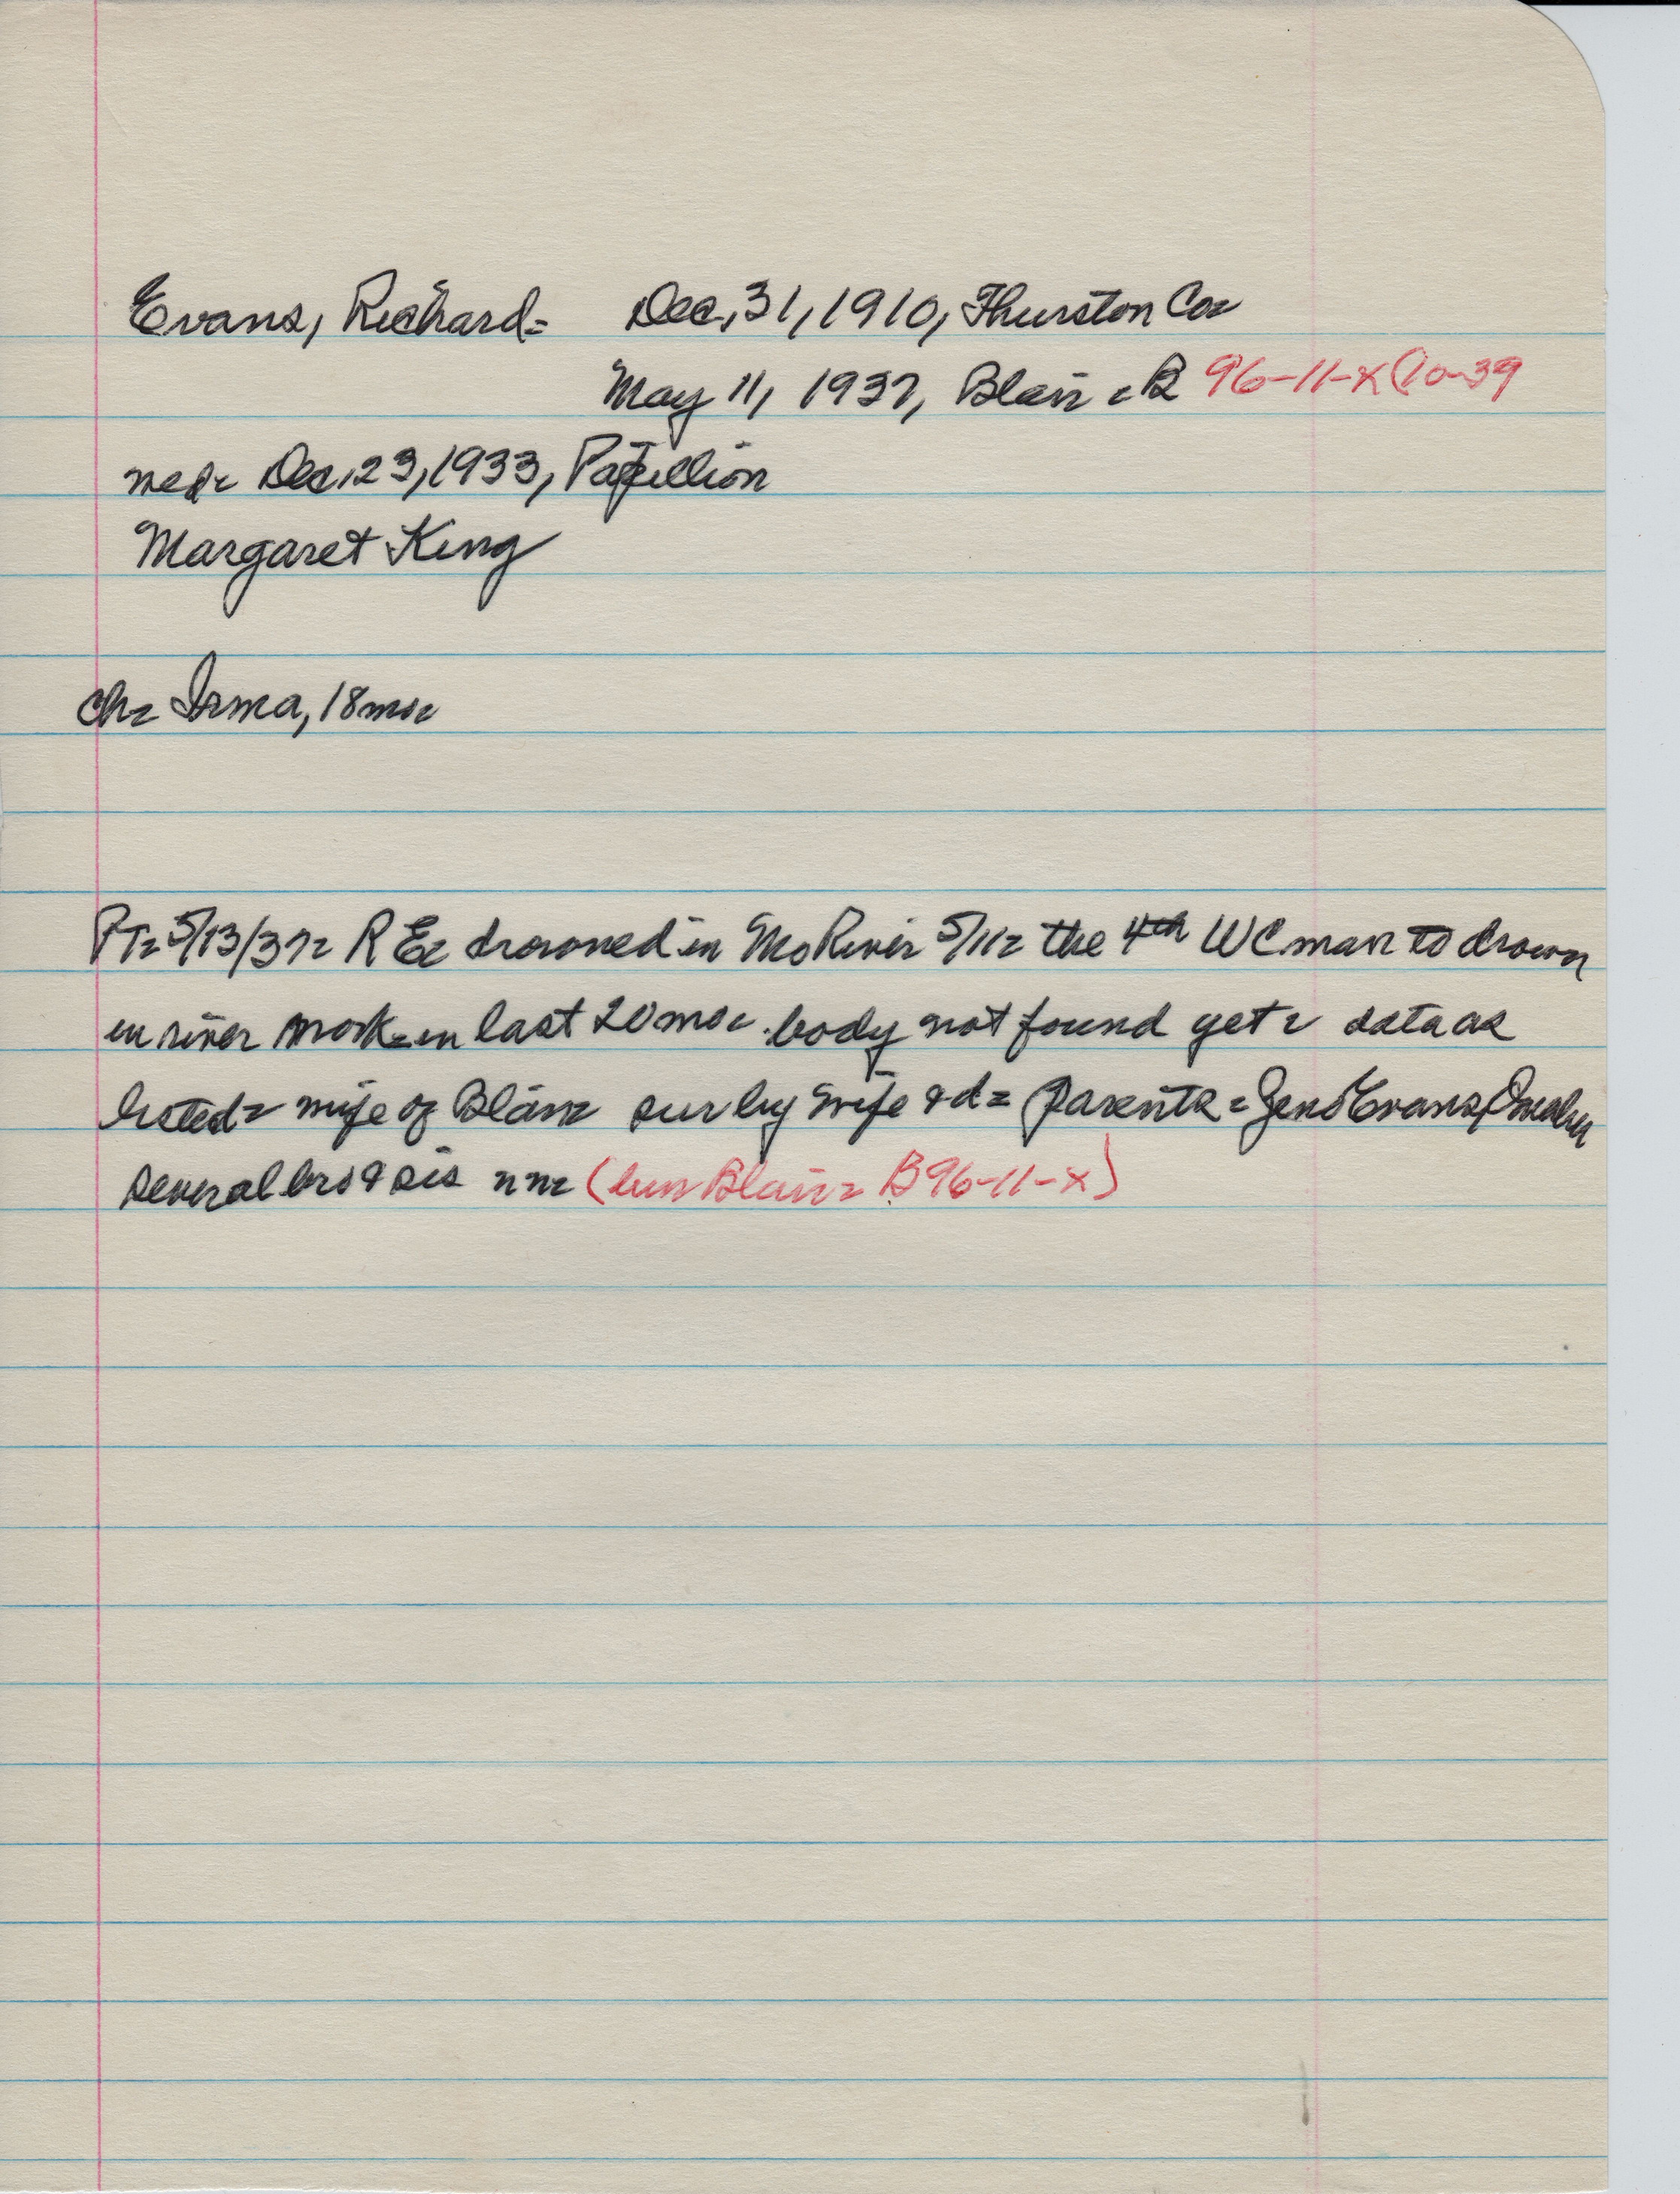 Evans, Richard- Dec, 31, 1910, Thurston Co-
May 11, 1937, Blair - B 96-11-X (10-39
med- Dec, 23, 1933, Papillion
Margaret King
ch- Irma, 18 mo-
PT- 5/13/37- R E- drowned in Mo River 5/11- the 4th WC man to drown
in river work- in last 20 mo- body not found yet- data as
listed- wife of Blair- sur by wife & d- parents- Evans, Omaha
several bro & sis nn- (bur Blair- B96-11-X)